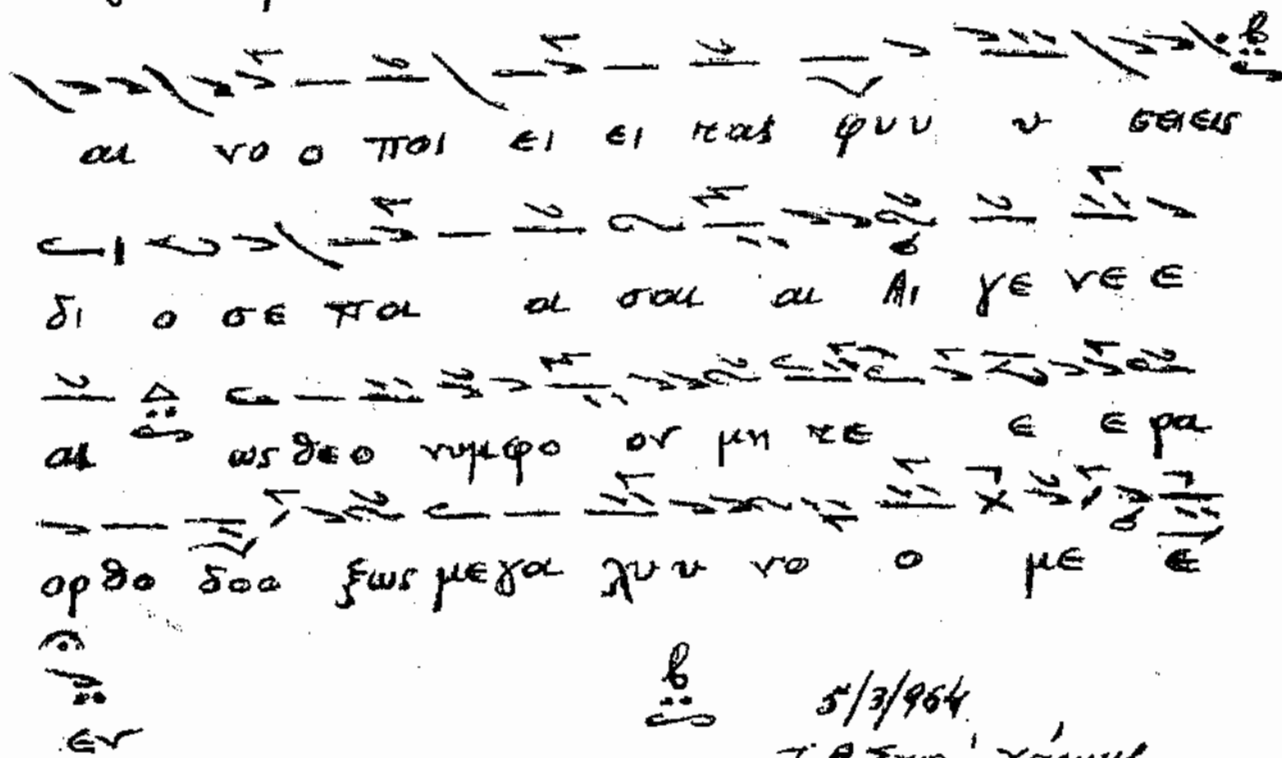 αι νο ο ποι ει ει τας φυυ υ σεεις
δι ο σε πα α σαι αι Αι γε νε ε
αι ως θεο νυμφο ον μη τε ε ε ρα
ορ θο δοο ξως με γα λυυ νο ο με ε
εν
5/3/964